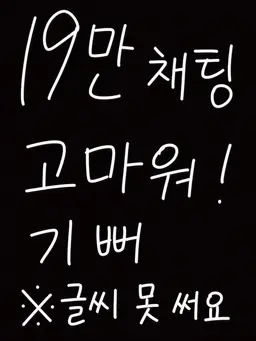 19만 채팅
고마워!
기뻐
※글씨 못 써요